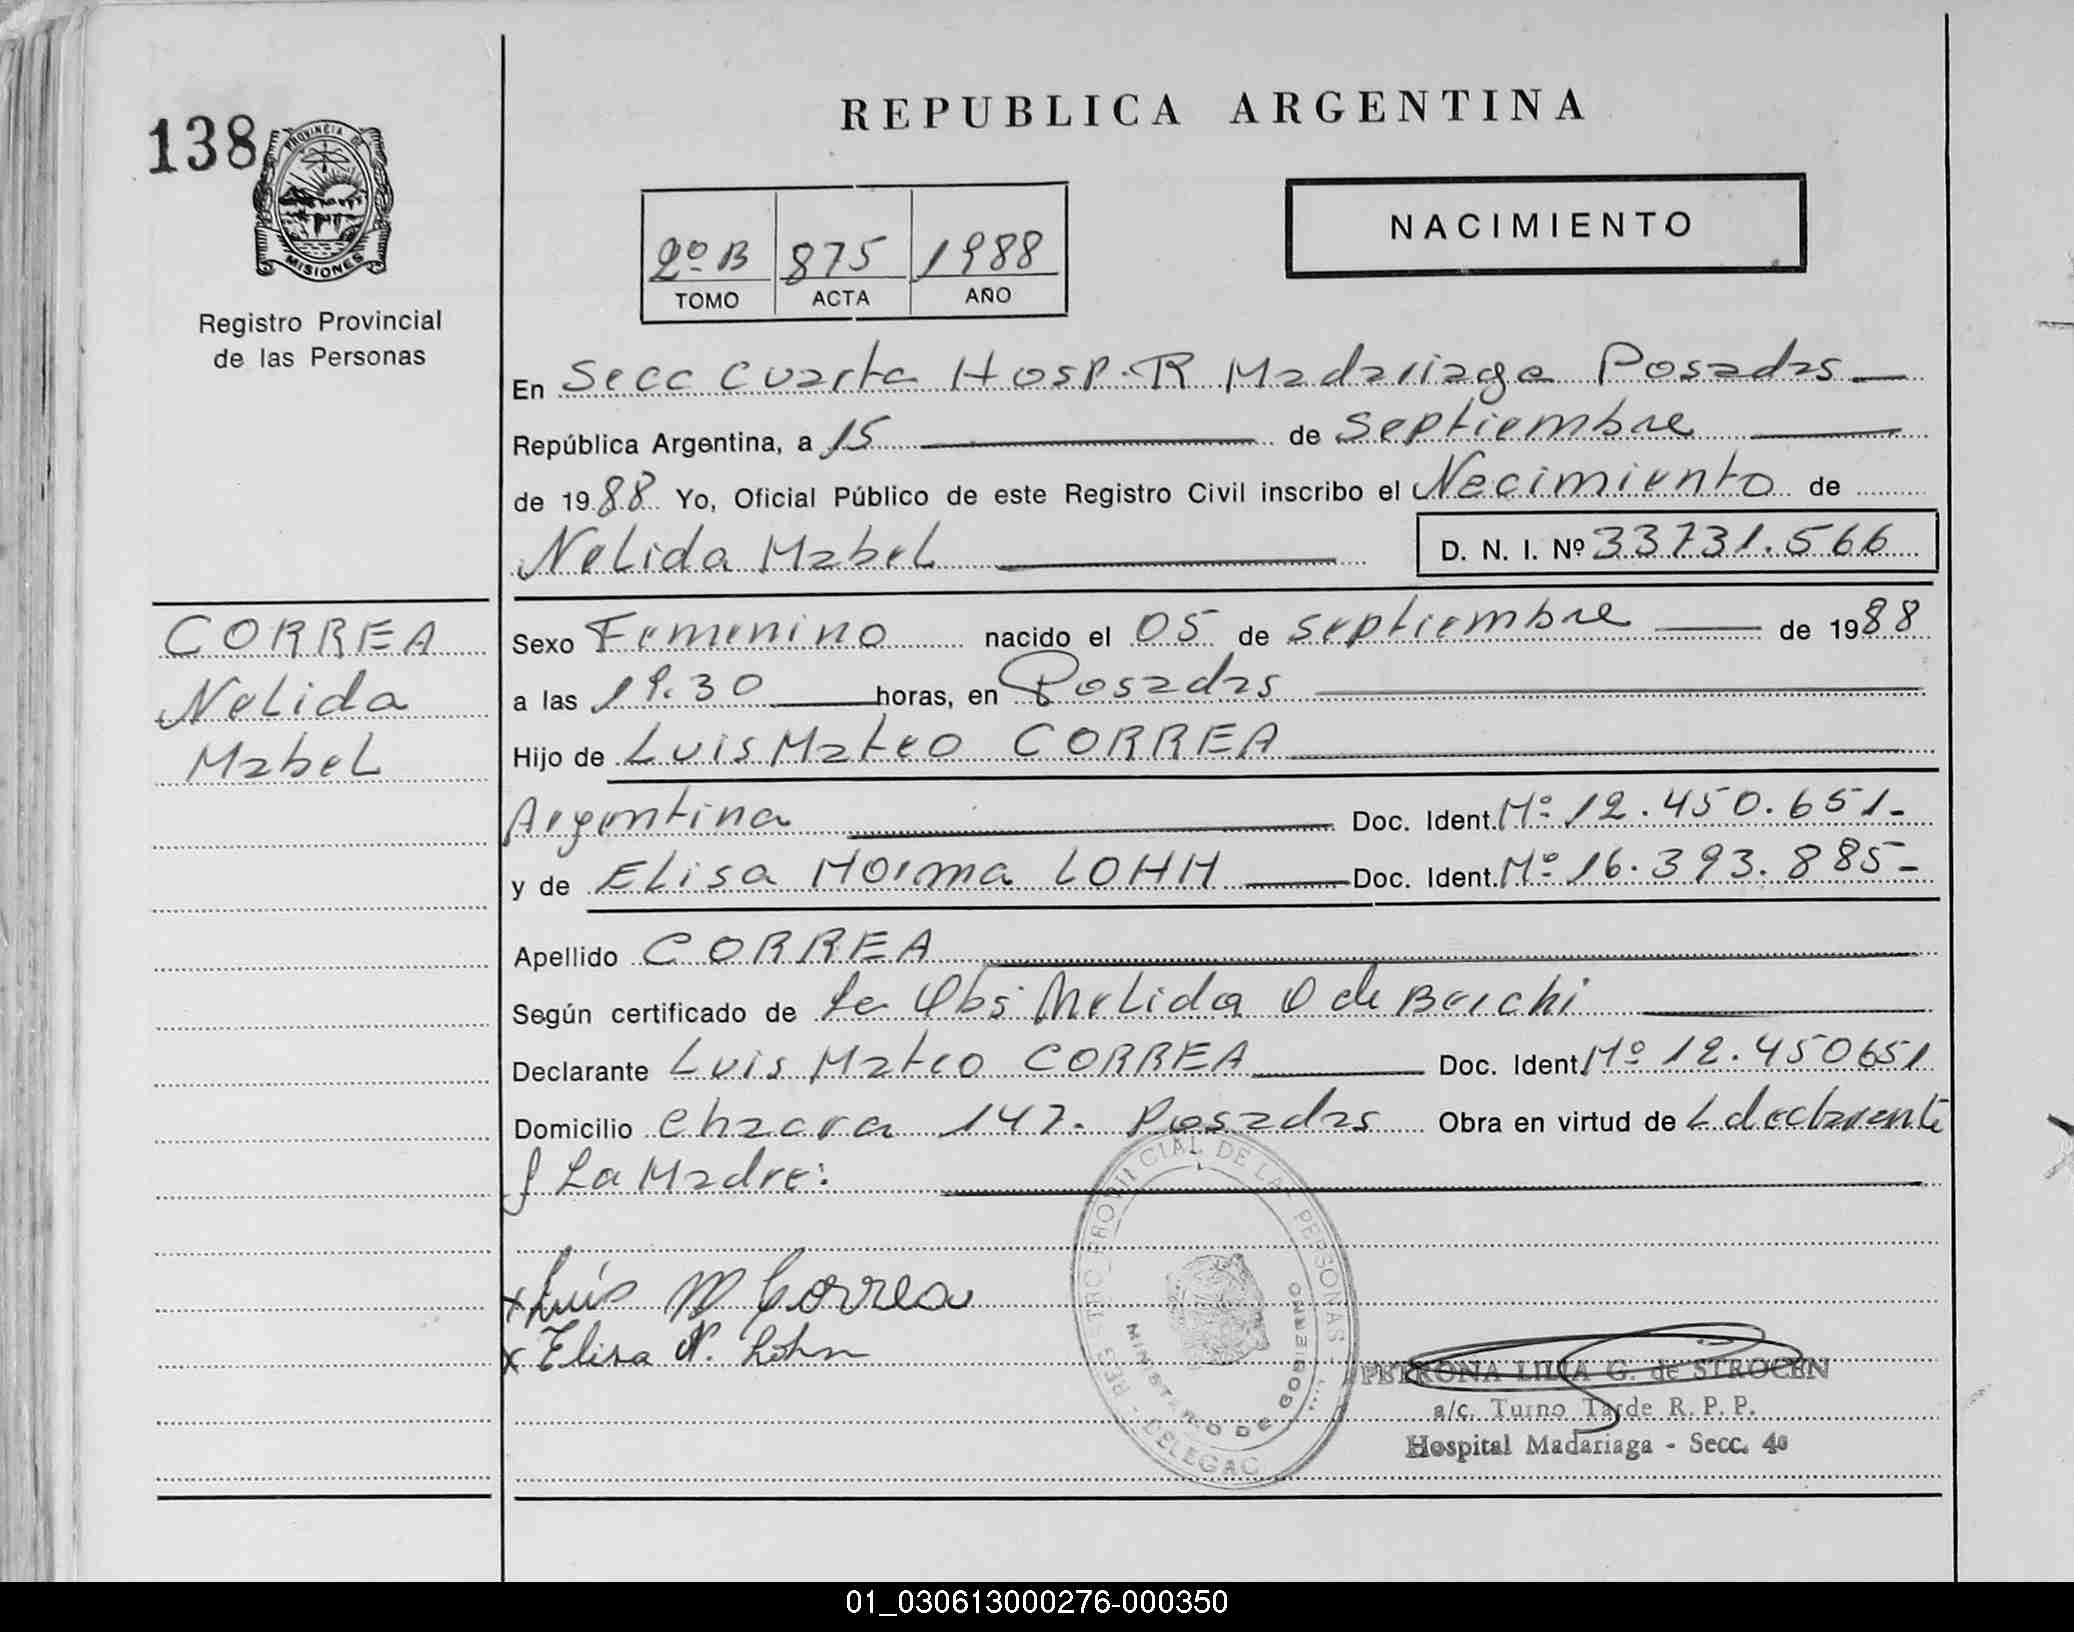 138
PROVINCIA DE
MISIONES
Registro Provincial
de las Personas
REPUBLICA ARGENTINA
2º B 875 1988
TOMO ACTA AÑO
NACIMIENTO
En Secc Cuarta Hosp. R Madariaga Posadas
República Argentina, a 15 de Septiembre
de 1988 Yo, Oficial Público de este Registro Civil inscribo el Nacimiento de
Nelida Mabel D. N. I. Nº 33731.566
CORREA
Nelida
Mabel
Sexo Femenino nacido el 05 de septiembre de 1988
a las 19.30 horas, en Posadas
Hijo de Luis Mateo CORREA
Argentina Doc. Ident. Mº 12.450.651-
y de Elisa Norma LOHN Doc. Ident. Mº 16.393.885-
Apellido CORREA
Según certificado de La Obs Nelida O de Berchi
Declarante Luis Mateo CORREA Doc. Ident. Mº 12.450651
Domicilio Chacra 147. Posadas Obra en virtud de L declarante
y La Madre:
x Luis M Correa
x Elisa N. Lohn
REGISTRO PROVINCIAL DE LAS PERSONAS
MINISTERIO DE GOBIERNO
DELEGAC
PETRONA LILIA G. de STROCEN
a/c. Turno Tarde R. P. P.
Hospital Madariaga - Secc. 4a
01_030613000276-000350